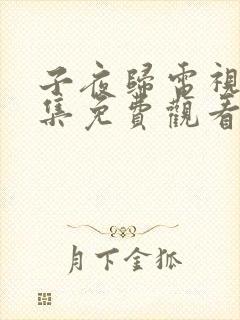 子夜歸電視
集免費觀看
月下金狐